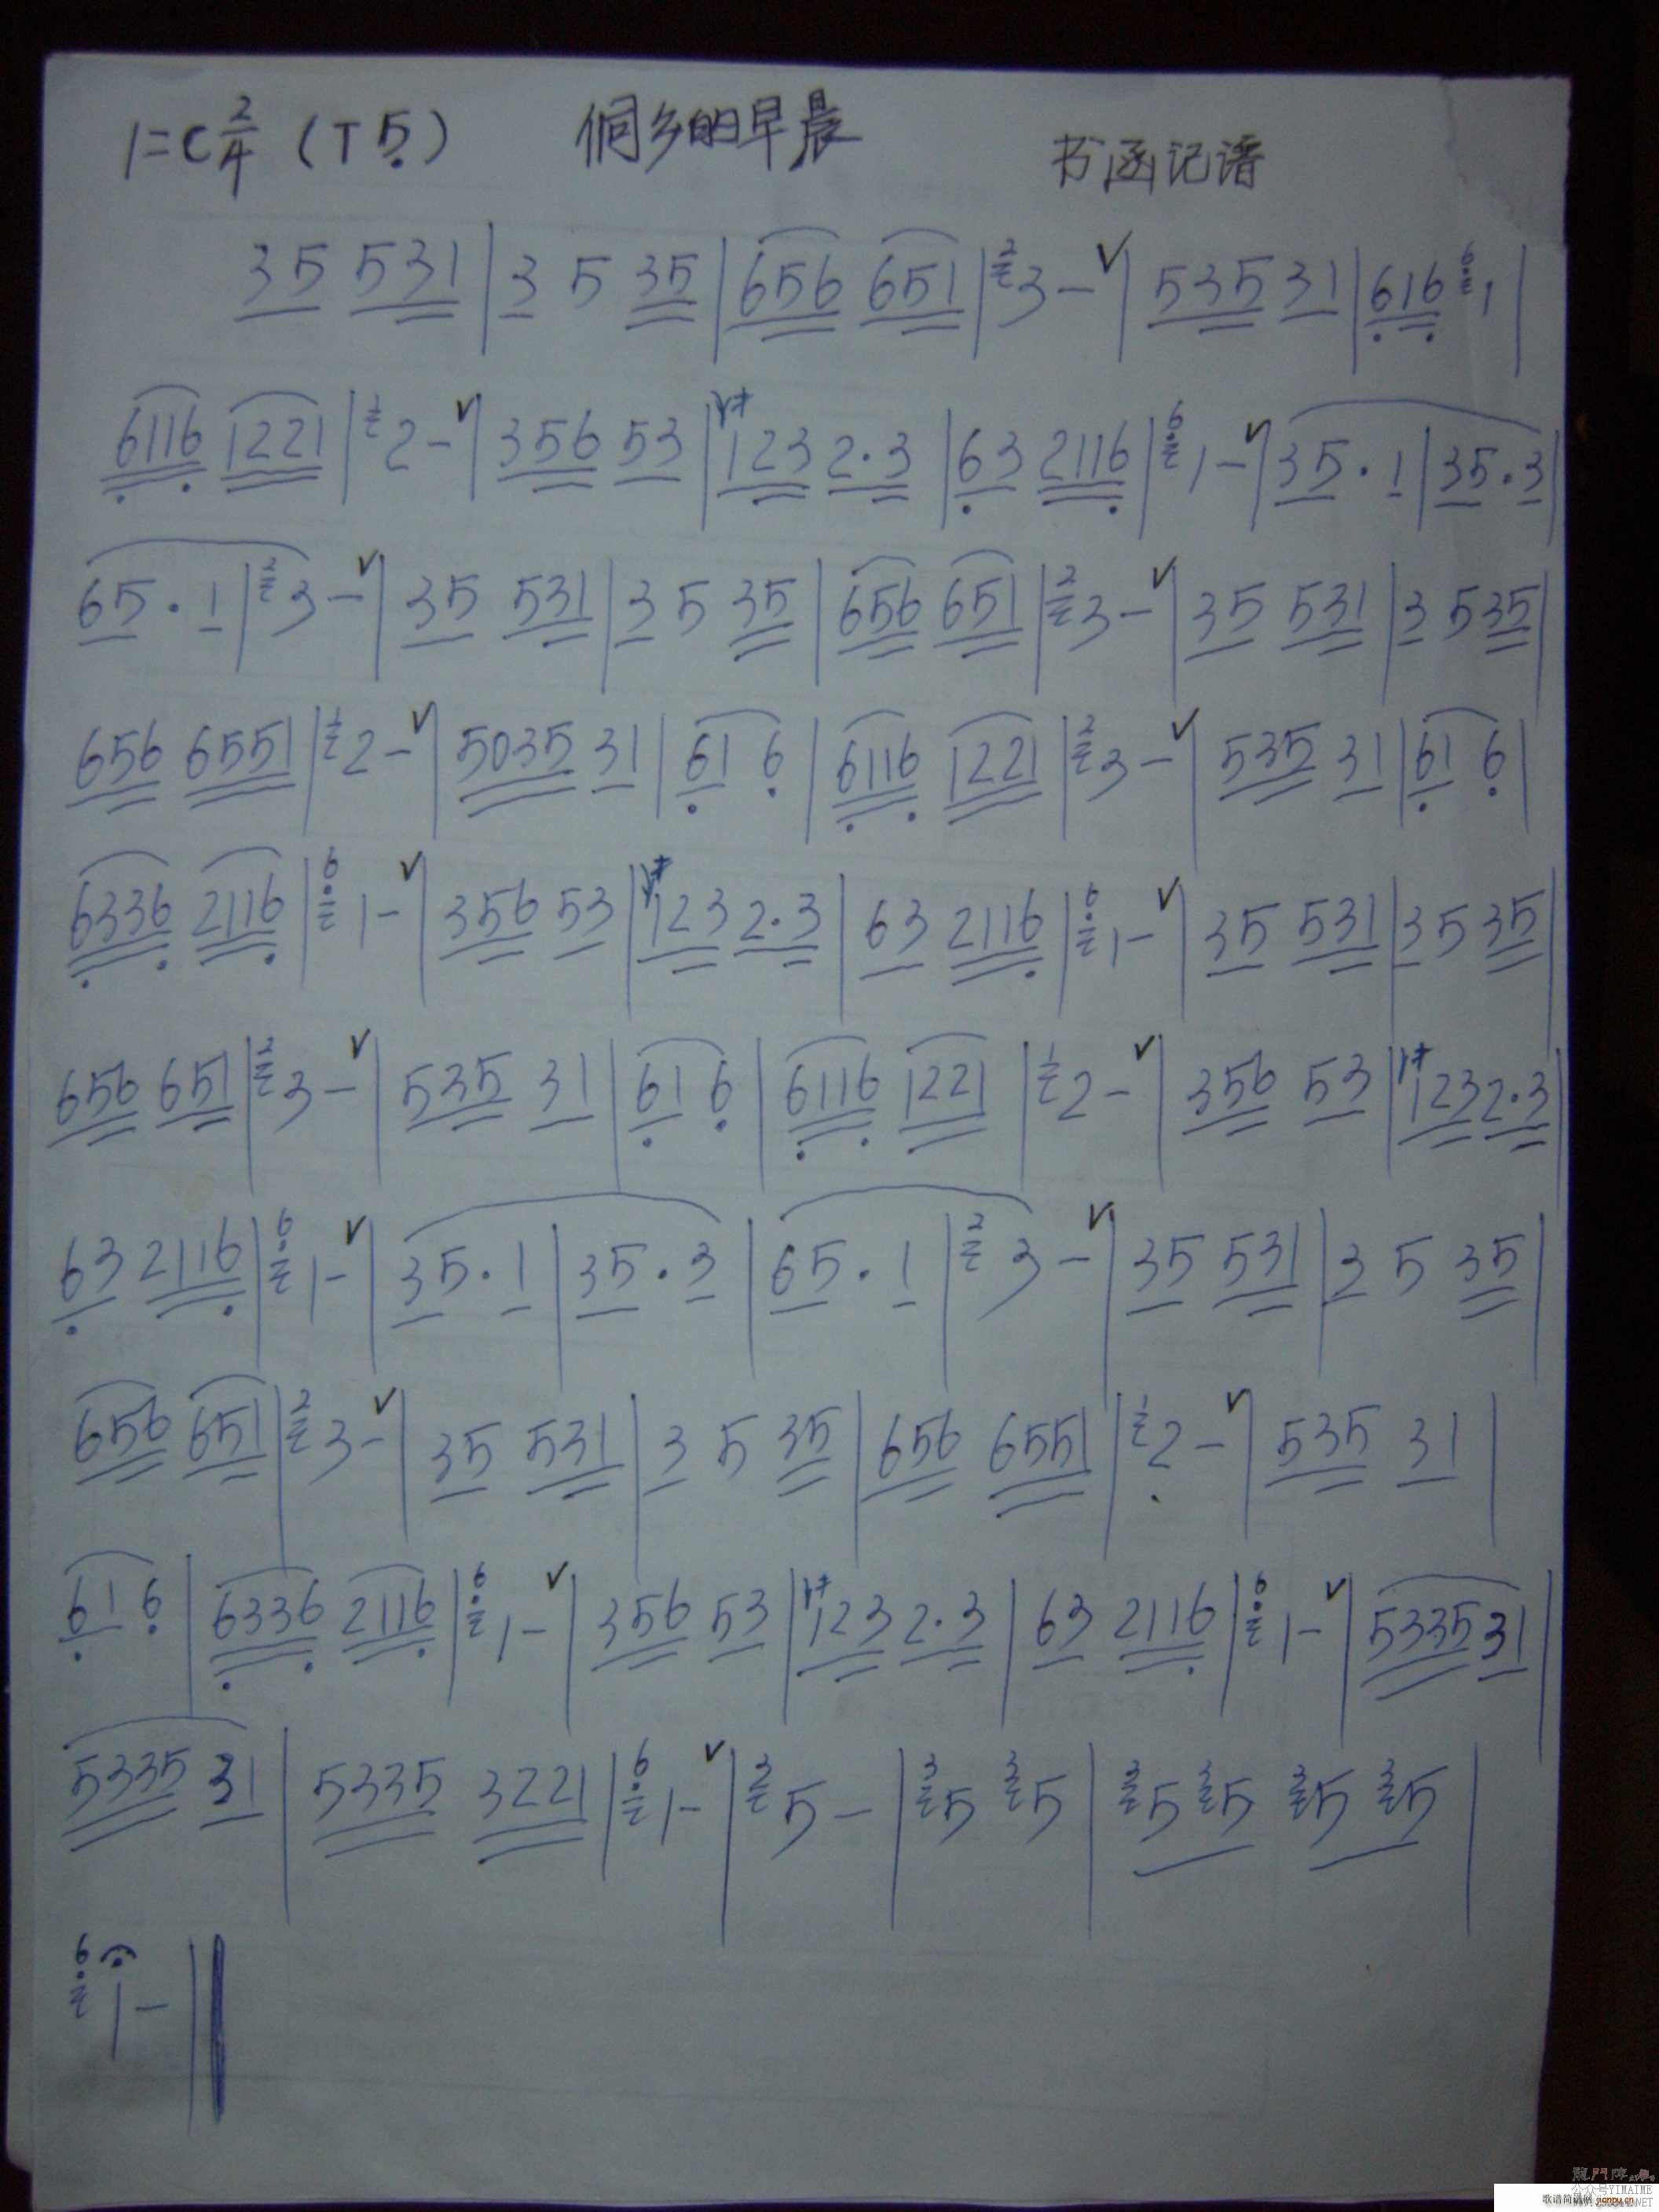 1=C 2/4 (T 5̣) 侗乡的早晨 书涵记谱
35 531 | 3 5 35 | 656 651 | 2 3 - V | 535 31 | 616 6 1 |
6116 1221 | 1 2 - V | 356 53 | 123 2·3 | 63 2116 | 6 1 - V | 35·1 | 35·3 |
65·1 | 2 3 - V | 35 531 | 3 5 35 | 656 651 | 2 3 - V | 35 531 | 3 5 35 |
656 6551 | 1 2 - V | 5035 31 | 61 6 | 6116 1221 | 2 3 - V | 535 31 | 61 6 |
6336 2116 | 6 1 - V | 356 53 | 123 2·3 | 63 2116 | 6 1 - V | 35 531 | 3 5 35 |
656 651 | 2 3 - V | 535 31 | 61 6 | 6116 1221 | 1 2 - V | 356 53 | 123 2·3 |
63 2116 | 6 1 - V | 35·1 | 35·3 | 65·1 | 2 3 - V | 35 531 | 3 5 35 |
656 651 | 2 3 - V | 35 531 | 3 5 35 | 656 6551 | 1 2 - V | 535 31 |
61 6 | 6336 2116 | 6 1 - V | 356 53 | 123 2·3 | 63 2116 | 6 1 - V | 5335 31 |
5335 31 | 5335 3221 | 6 1 - V | 3 5 - | 3 5 3 5 | 3 5 3 5 3 5 3 5 |
6 1 - ||
公众号YIMAIME
歌谱简谱网 jianpu.cn